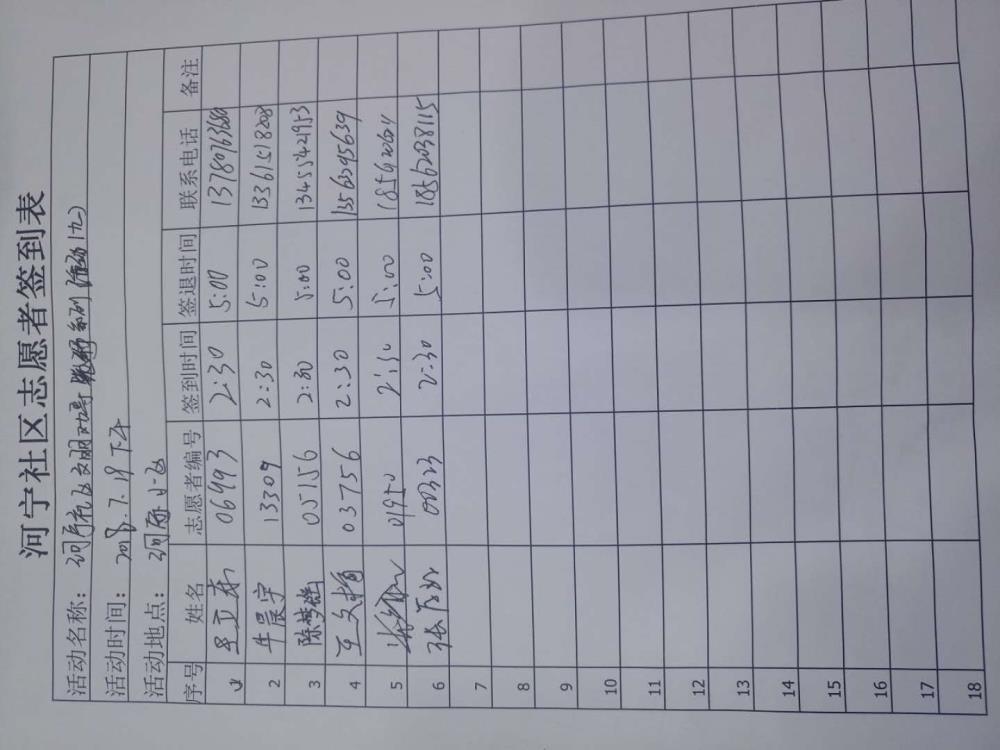 河宁社区志愿者签到表
活动名称：河宁社区文明劝导 系列活动(九)
活动时间：2018.7.19 下午
活动地点：河宁小区
序号 姓名 志愿者编号 签到时间 签退时间 联系电话 备注
06993 2:30 5:00
2 牛晨宇 13309 2:30 5:00 13361518208
3 陈梦瑶 05156 2:30 5:00 13455421953
4 王文楠 03756 2:30 5:00 13563295639
5 01950 2:30 5:00
6 00323 2:30 5:00 18562038115
7
8
9
10
11
12
13
14
15
16
17
18